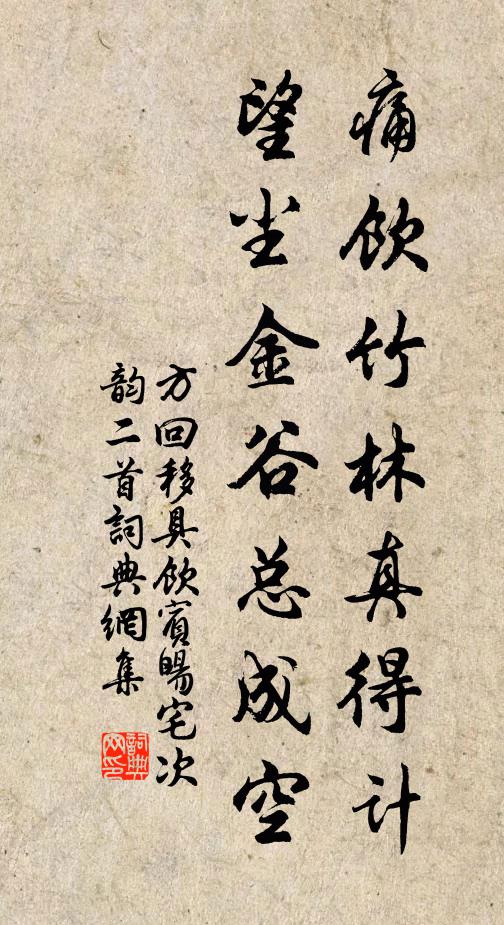 痛饮竹林真得计
望尘金谷总成空
方回移具饮宾旸宅次
韵二首詞典網集
詞典网印